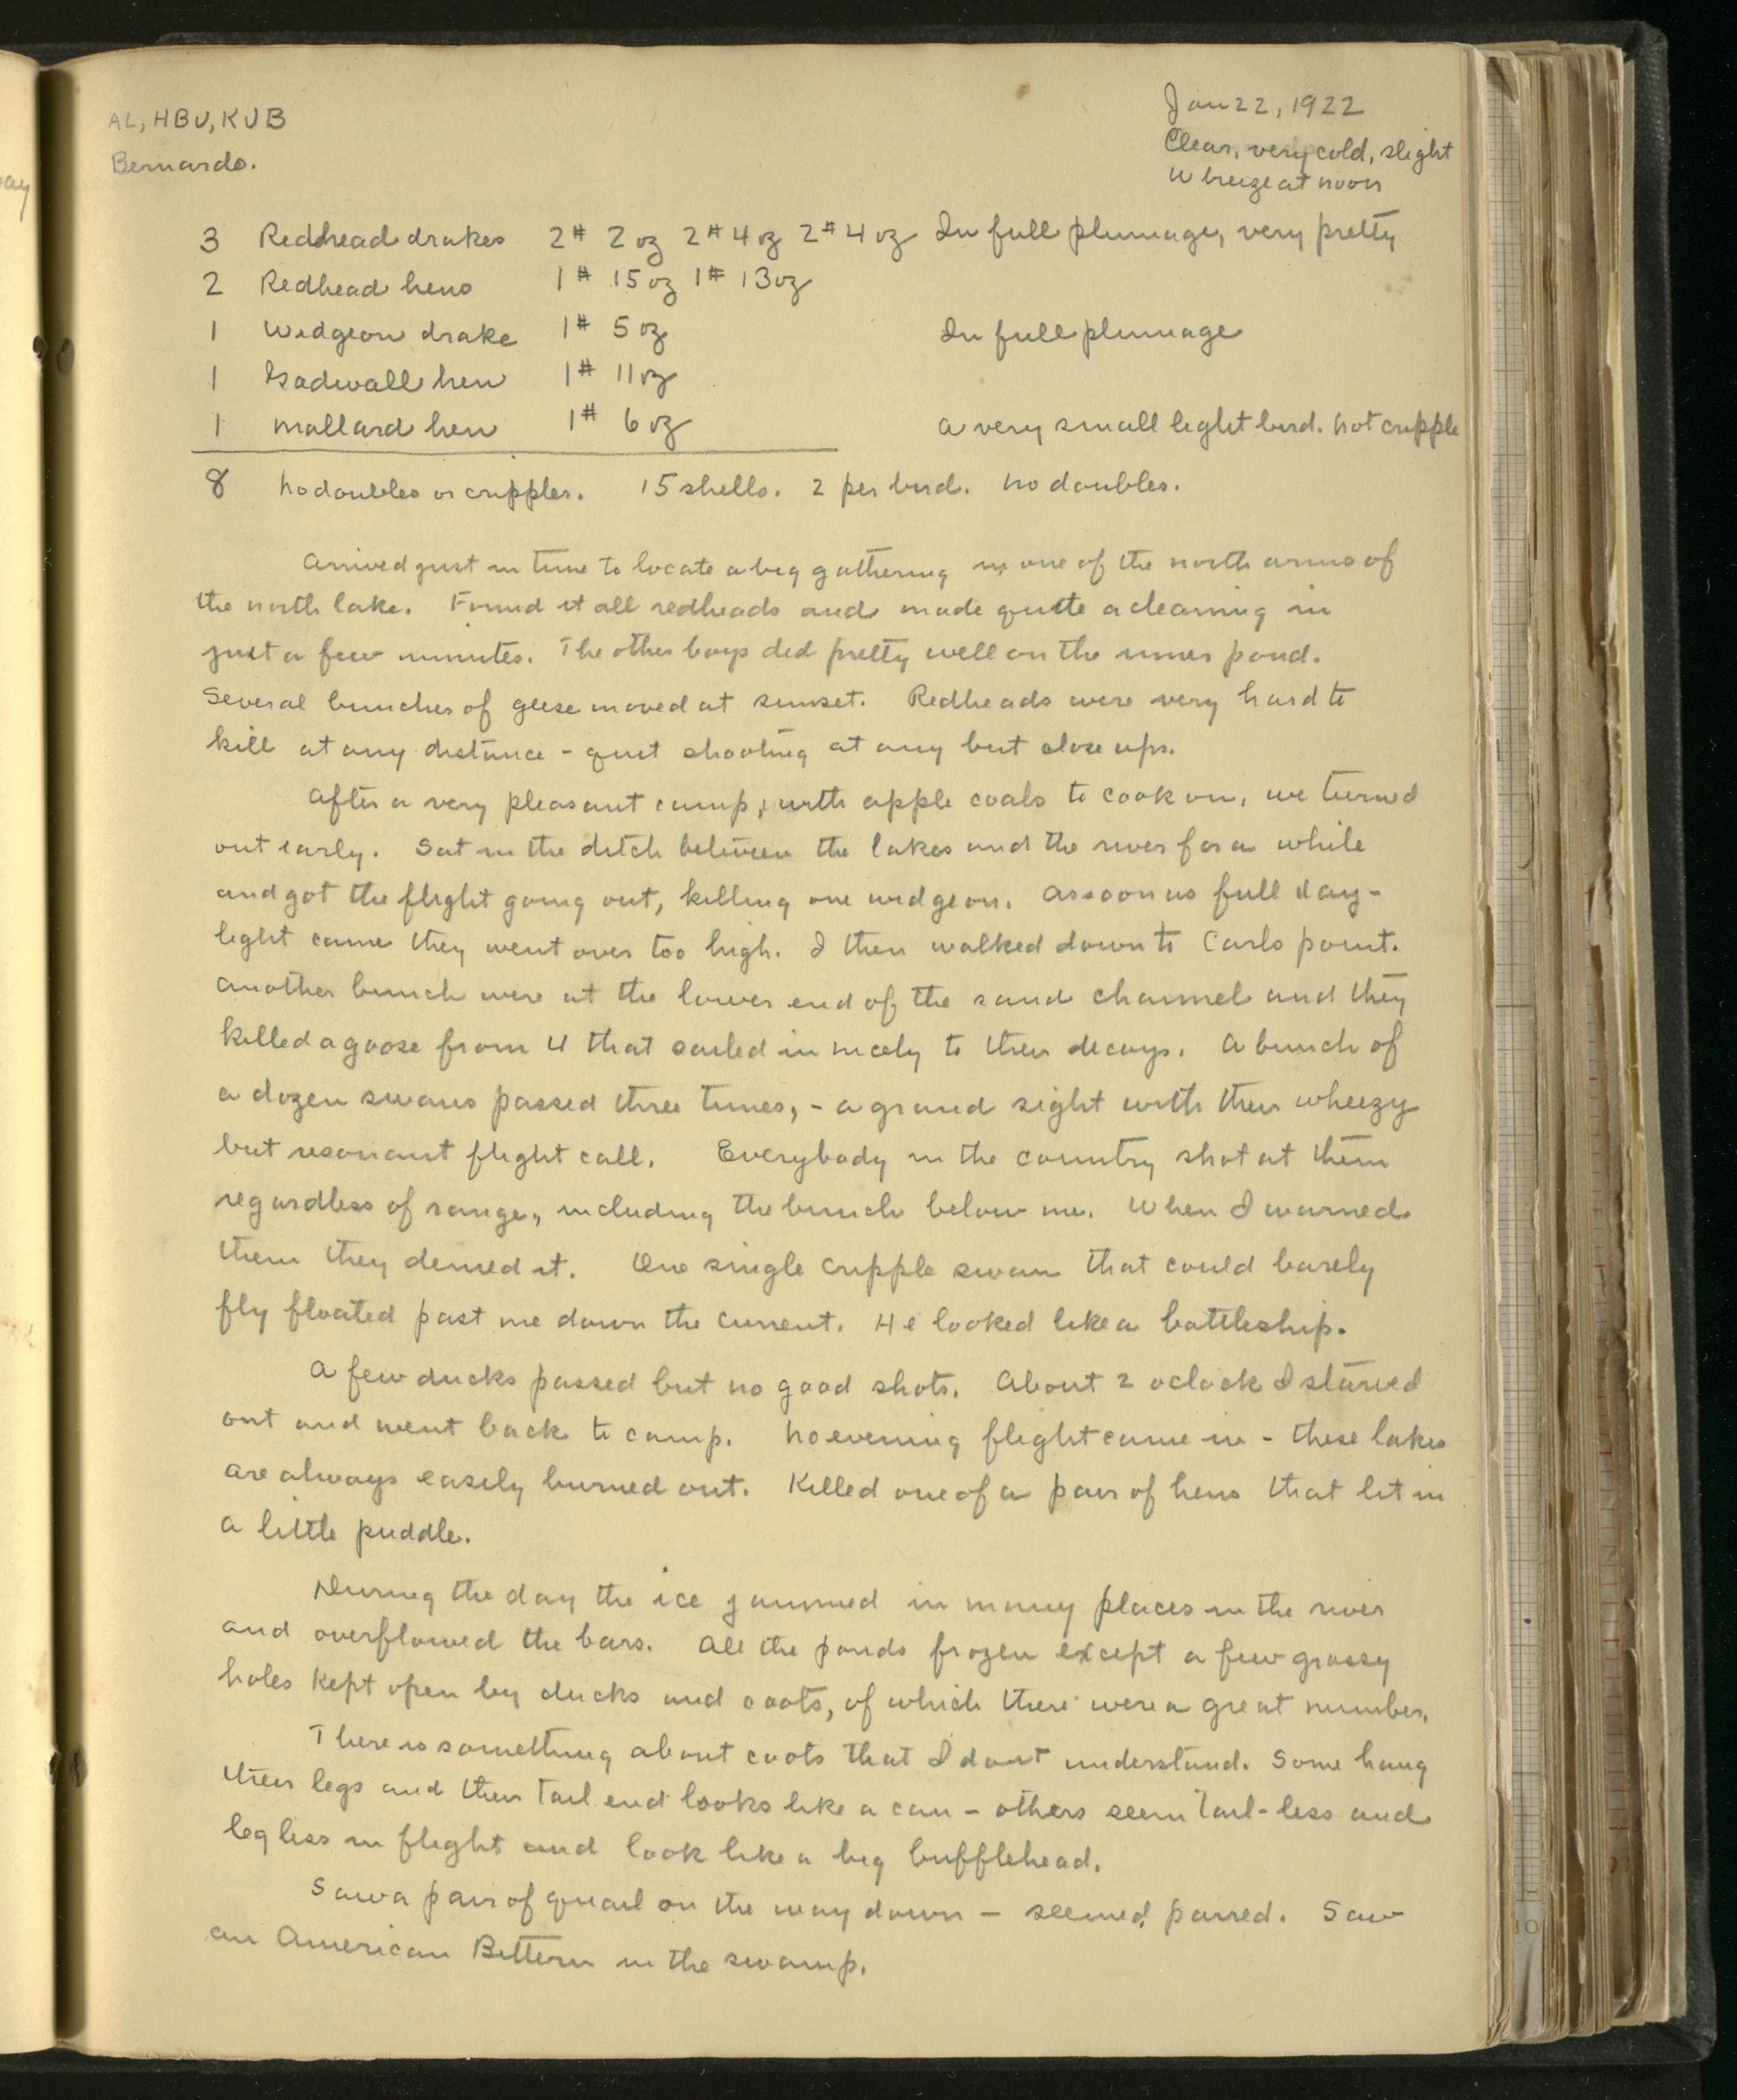 AL, HBU, KUB
Bernardo.
Jan 22, 1922
Clear, very cold, slight
W breeze at noon
3 Redhead drakes 2# 2 oz 2# 4 oz 2# 4 oz In full plumage, very pretty
2 Redhead hens 1# 15 oz 1# 13 oz
1 Widgeon drake 1# 5 oz In full plumage
1 Gadwall hen 1# 11 oz
1 Mallard hen 1# 6 oz A very small light bird. Not cripple
8 No doubles or cripples. 15 shells. 2 per bird. No doubles.
Arrived just in time to locate a big gathering in one of the north arms of
the north lake. Found it all redheads and made quite a cleaning in
just a few minutes. The other boys did pretty well on the inner pond.
Several bunches of geese moved at sunset. Redheads were very hard to
kill at any distance - quit shooting at any but close ups.
After a very pleasant camp, with apple coals to cook on, we turned
out early. Sat in the ditch between the lakes and the river for a while
and got the flight going out, killing one widgeon. As soon as full day-
light came they went over too high. I then walked down to Carls point.
Another bunch were at the lower end of the sand channel and they
killed a goose from 4 that sailed in nicely to their decoys. A bunch of
a dozen swans passed three times, - a grand sight with their wheezy
but resonant flight call. Everybody in the country shot at them
regardless of range, including the bunch below me. When I warned
them they denied it. One single cripple swan that could barely
fly floated past me down the current. He looked like a battleship.
A few ducks passed but no good shots. About 2 oclock I starved
out and went back to camp. No evening flight came in - these lakes
are always easily burned out. Killed one of a pair of hens that lit in
a little puddle.
During the day the ice jammed in many places in the river
and overflowed the bars. All the ponds frozen except a few grassy
holes kept open by ducks and coots, of which there were a great number.
There is something about coots that I dont understand. Some hang
their legs and their tail end looks like a can - others seem tail-less and
legless in flight and look like a big bufflehead.
Saw a pair of quail on the way down - seemed paired. Saw
an American Bittern in the swamp.
10